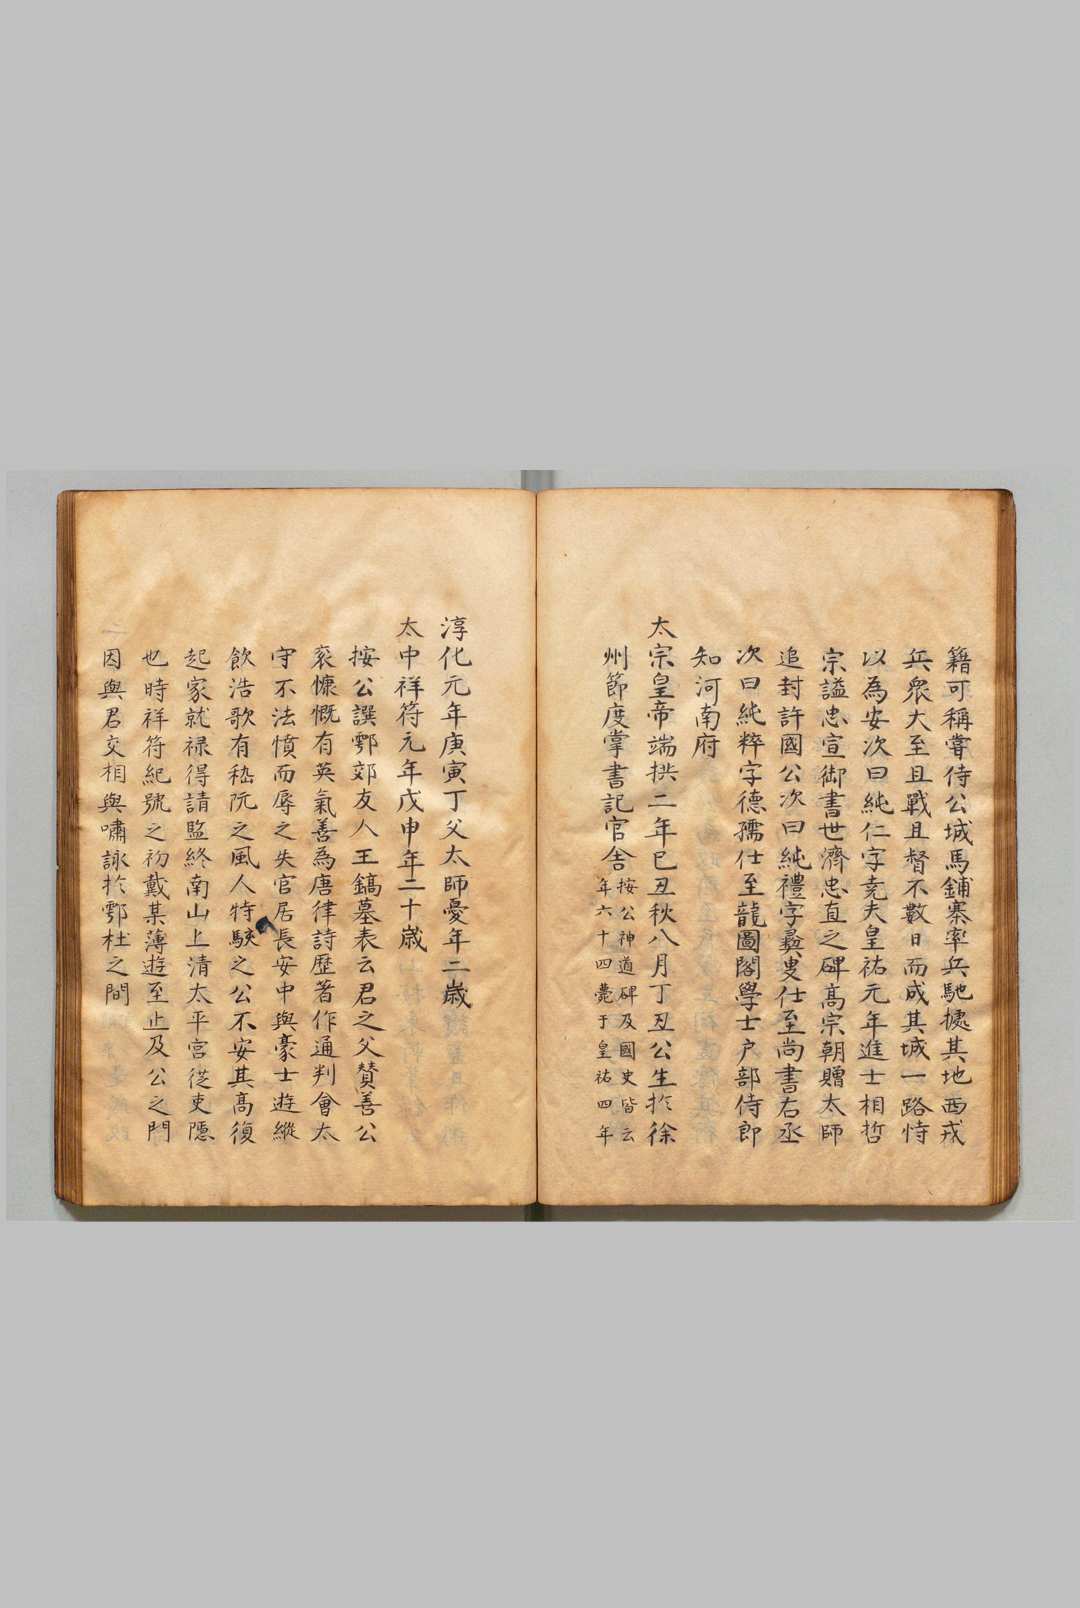 籍可稱嘗侍公城馬鋪寨率兵馳㩀其地西戎
兵衆大至且戰且督不數日而成其城一路恃
以為安次曰純仁字堯夫皇祐元年進士相哲
宗謚忠宣御書世濟忠直之碑髙宗朝贈太師
追封許國公次曰純禮字彛叟仕至尚書右丞
次曰純粹字德孺仕至龍圖閣學士户部侍郎
知河南府
太宗皇帝端拱二年巳丑秋八月丁丑公生於徐
州節度掌書記官舍按公神道碑及國史皆云
年六十四薨于皇祐四年
淳化元年庚寅丁父太師憂年二歳
太中祥符元年戊申年二十歳
按公譔鄠郊友人王鎬墓表云君之父賛善公
衮慷慨有英氣善為唐律詩歴著作通判會太
守不法憤而辱之失官居長安中與豪士遊縱
飲浩歌有嵇阮之風人特駭之公不安其髙復
起家就禄得請監終南山上清太平宫從吏隱
也時祥符紀號之初戴某薄遊至止及公之門
因與君交相與嘯詠於鄠杜之間